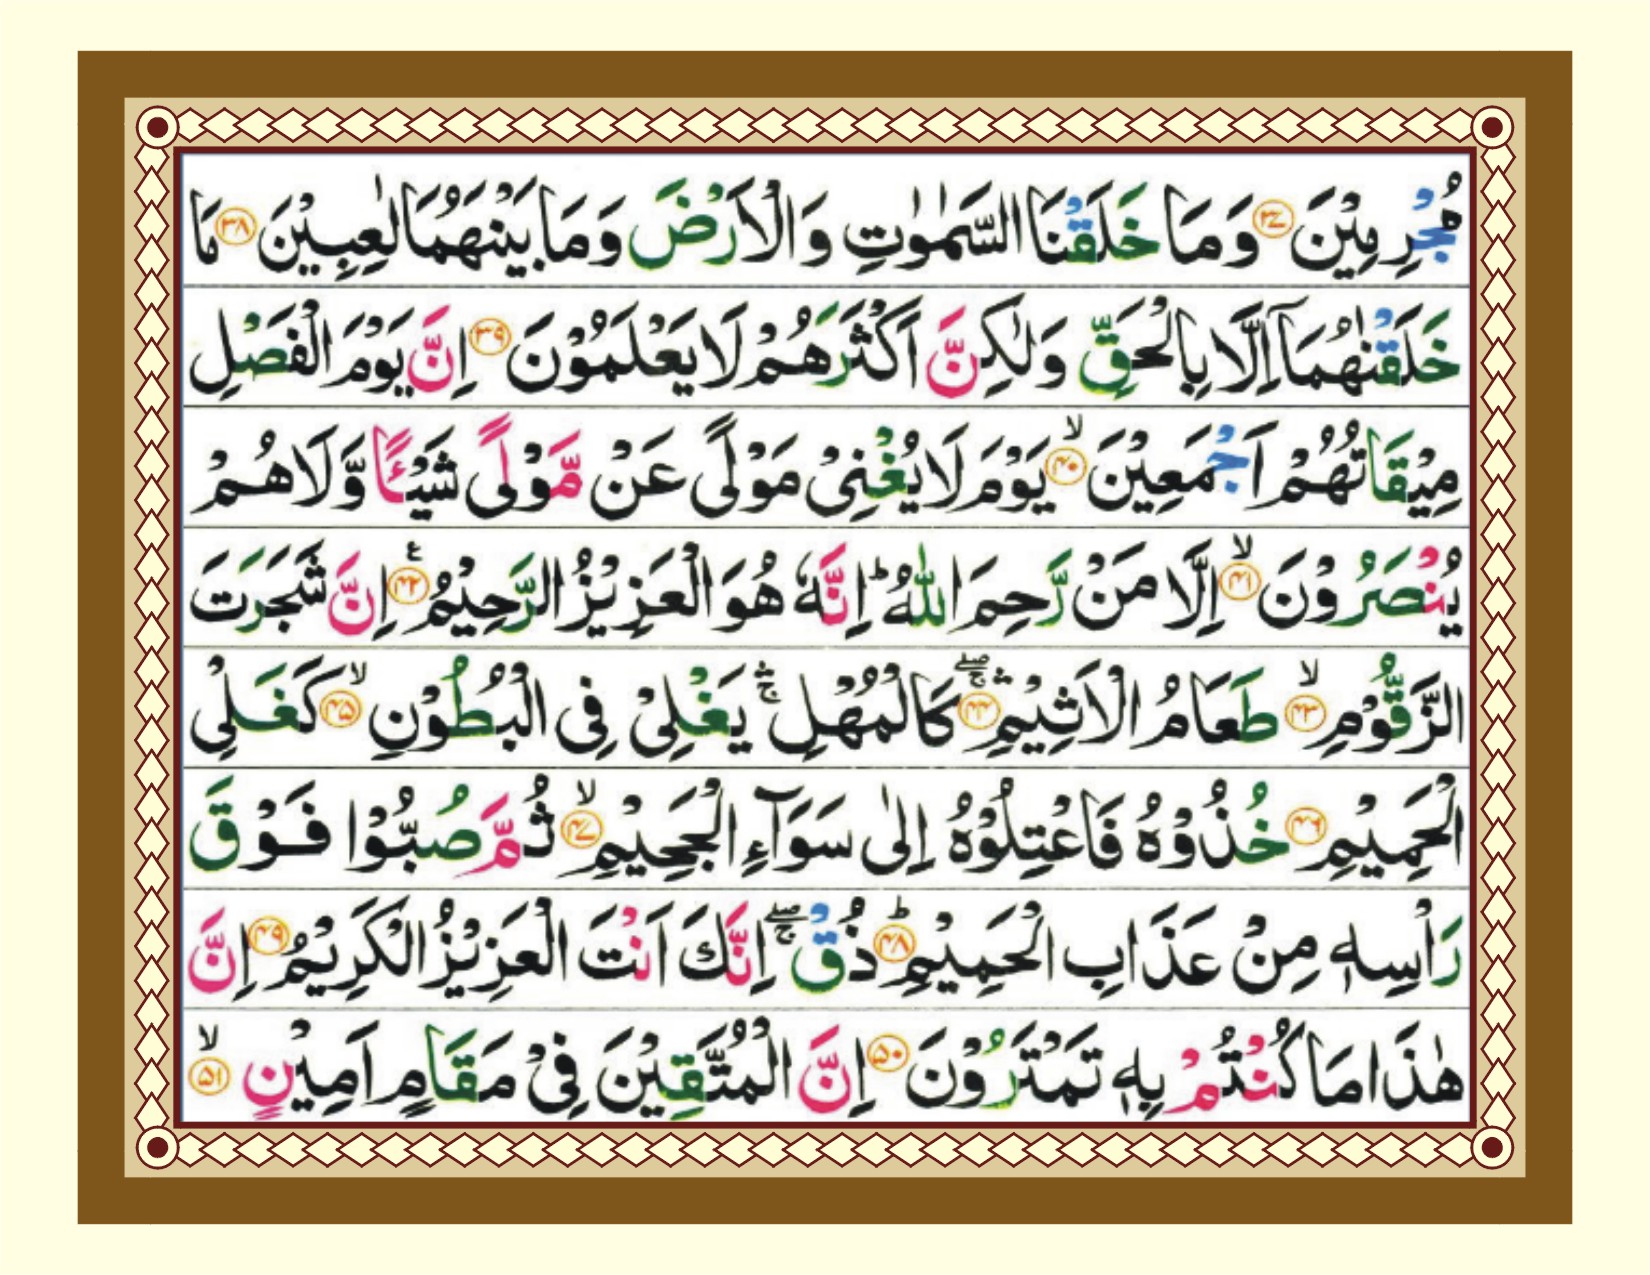 مُجْرِمِيْنَ ﴿۳۷﴾ وَمَا خَلَقْنَا السَّمٰوٰتِ وَالْاَرْضَ وَمَا بَيْنَهُمَا لٰعِبِيْنَ ﴿۳۸﴾ مَا
خَلَقْنٰهُمَاۤ اِلَّا بِالْحَقِّ وَلٰكِنَّ اَكْثَرَهُمْ لَا يَعْلَمُوْنَ ﴿۳۹﴾ اِنَّ يَوْمَ الْفَصْلِ
مِيْقَاتُهُمْ اَجْمَعِيْنَ ۙ﴿۴۰﴾ يَوْمَ لَا يُغْنِىْ مَوْلًى عَنْ مَّوْلًى شَيْـًٔا وَّلَا هُمْ
يُنْصَرُوْنَ ۙ﴿۴۱﴾ اِلَّا مَنْ رَّحِمَ اللّٰهُ ؕ اِنَّهٗ هُوَ الْعَزِيْزُ الرَّحِيْمُ ﴿۴۲﴾ ع اِنَّ شَجَرَتَ
الزَّقُّوْمِ ۙ﴿۴۳﴾ طَعَامُ الْاَثِيْمِ ۛۚۖ﴿۴۴﴾ كَالْمُهْلِ ۛۚ يَغْلِىْ فِى الْبُطُوْنِ ۙ﴿۴۵﴾ كَغَلْىِ
الْحَمِيْمِ ﴿۴۶﴾ خُذُوْهُ فَاعْتِلُوْهُ اِلٰى سَوَآءِ الْجَحِيْمِ ۙ﴿۴۷﴾ ثُمَّ صُبُّوْا فَوْقَ
رَاْسِهٖ مِنْ عَذَابِ الْحَمِيْمِ ؕ﴿۴۸﴾ ذُقْ ۚۖ اِنَّكَ اَنْتَ الْعَزِيْزُ الْكَرِيْمُ ﴿۴۹﴾ اِنَّ
هٰذَا مَا كُنْتُمْ بِهٖ تَمْتَرُوْنَ ﴿۵۰﴾ اِنَّ الْمُتَّقِيْنَ فِىْ مَقَامٍ اَمِيْنٍ ۙ﴿۵۱﴾